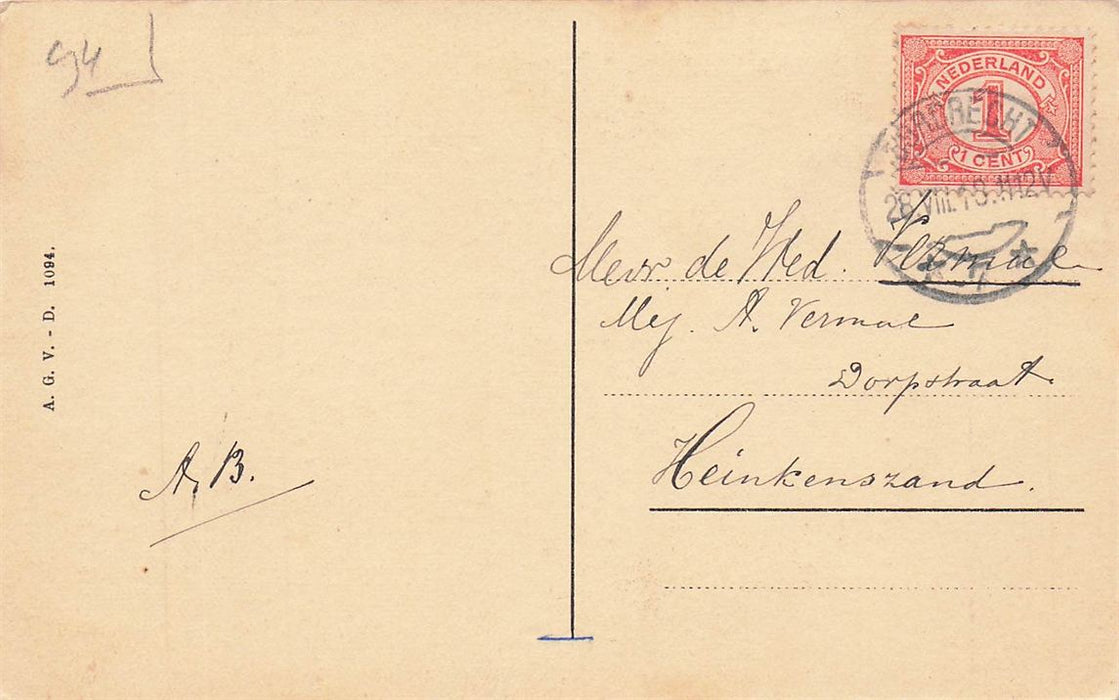 94
A. G. V. - D. 1094.
A. B.
NEDERLAND
1
1 CENT
28.VIII.18.11-12V
Mevr. de Wed. Vermue
Mej. A. Vermue
Dorpstraat.
Heinkenszand.